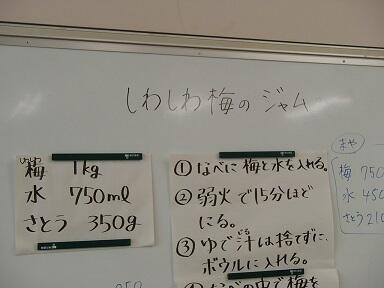 しわしわ梅のジャム
しわしわ
梅 1kg
水 750ml
さとう 350g
①なべに 梅と水を入れる。
②弱火で15分ほど
にる。
③ゆで汁は捨てずに、
ボウルに入れる。
なべの中で梅を
梅 750
水 450
さとう210